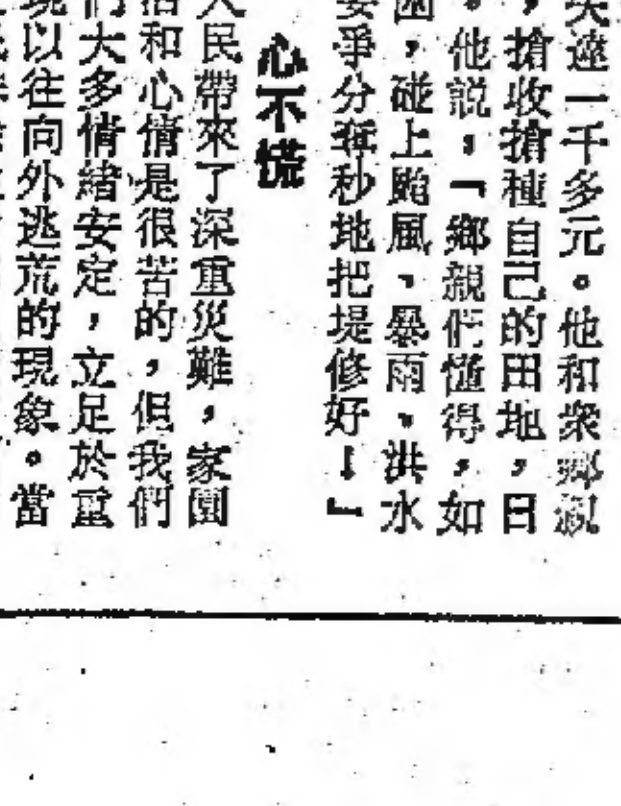 失達一千多元。他和衆鄉親
，搶收搶種自己的田地，日
。他說，「鄉親們懂得，如
，碰上颱風、暴雨、洪水
要爭分奪秒地把堤修好！』
心不慌
人民帶來了深重災難，家園
活和心情是很苦的，但我們
們大多情緒安定，立足於重
現以往向外逃荒的現象。當